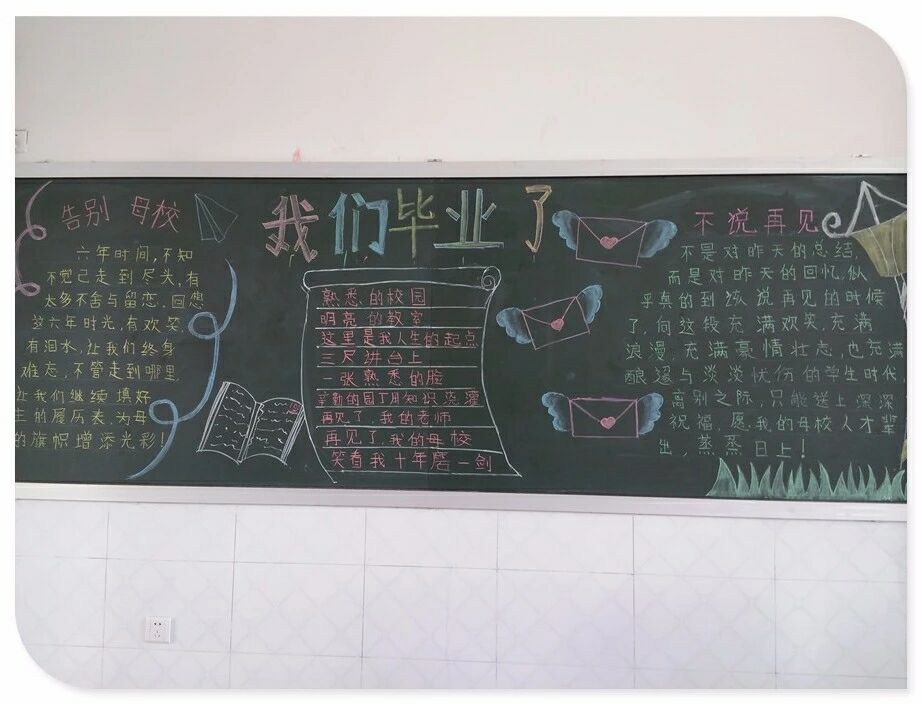 告别 母校
六年时间,不知
不觉已走到尽头,有
太多不舍与留恋,回想
这六年时光,有欢笑
有泪水,让我们终身
难忘,不管走到哪里
让我们继续填好
生的履历表,为母
的旗帜增添光彩!
我们毕业了
熟悉的校园
明亮的教室
这里是我人生的起点
三尺讲台上
一张熟悉的脸
辛勤的园丁用知识浇灌
再见了 我的老师
再见了,我的母校
笑看我十年磨一剑
不说再见
不是对昨天的总结,
而是对昨天的回忆,似
乎真的到该说再见的时候
了,向这段充满欢笑,充满
浪漫,充满豪情壮志,也充满
酸涩与淡淡忧伤的学生时代,
离别之际,只能送上深深
祝福,愿我的母校人才辈
出,蒸蒸日上!